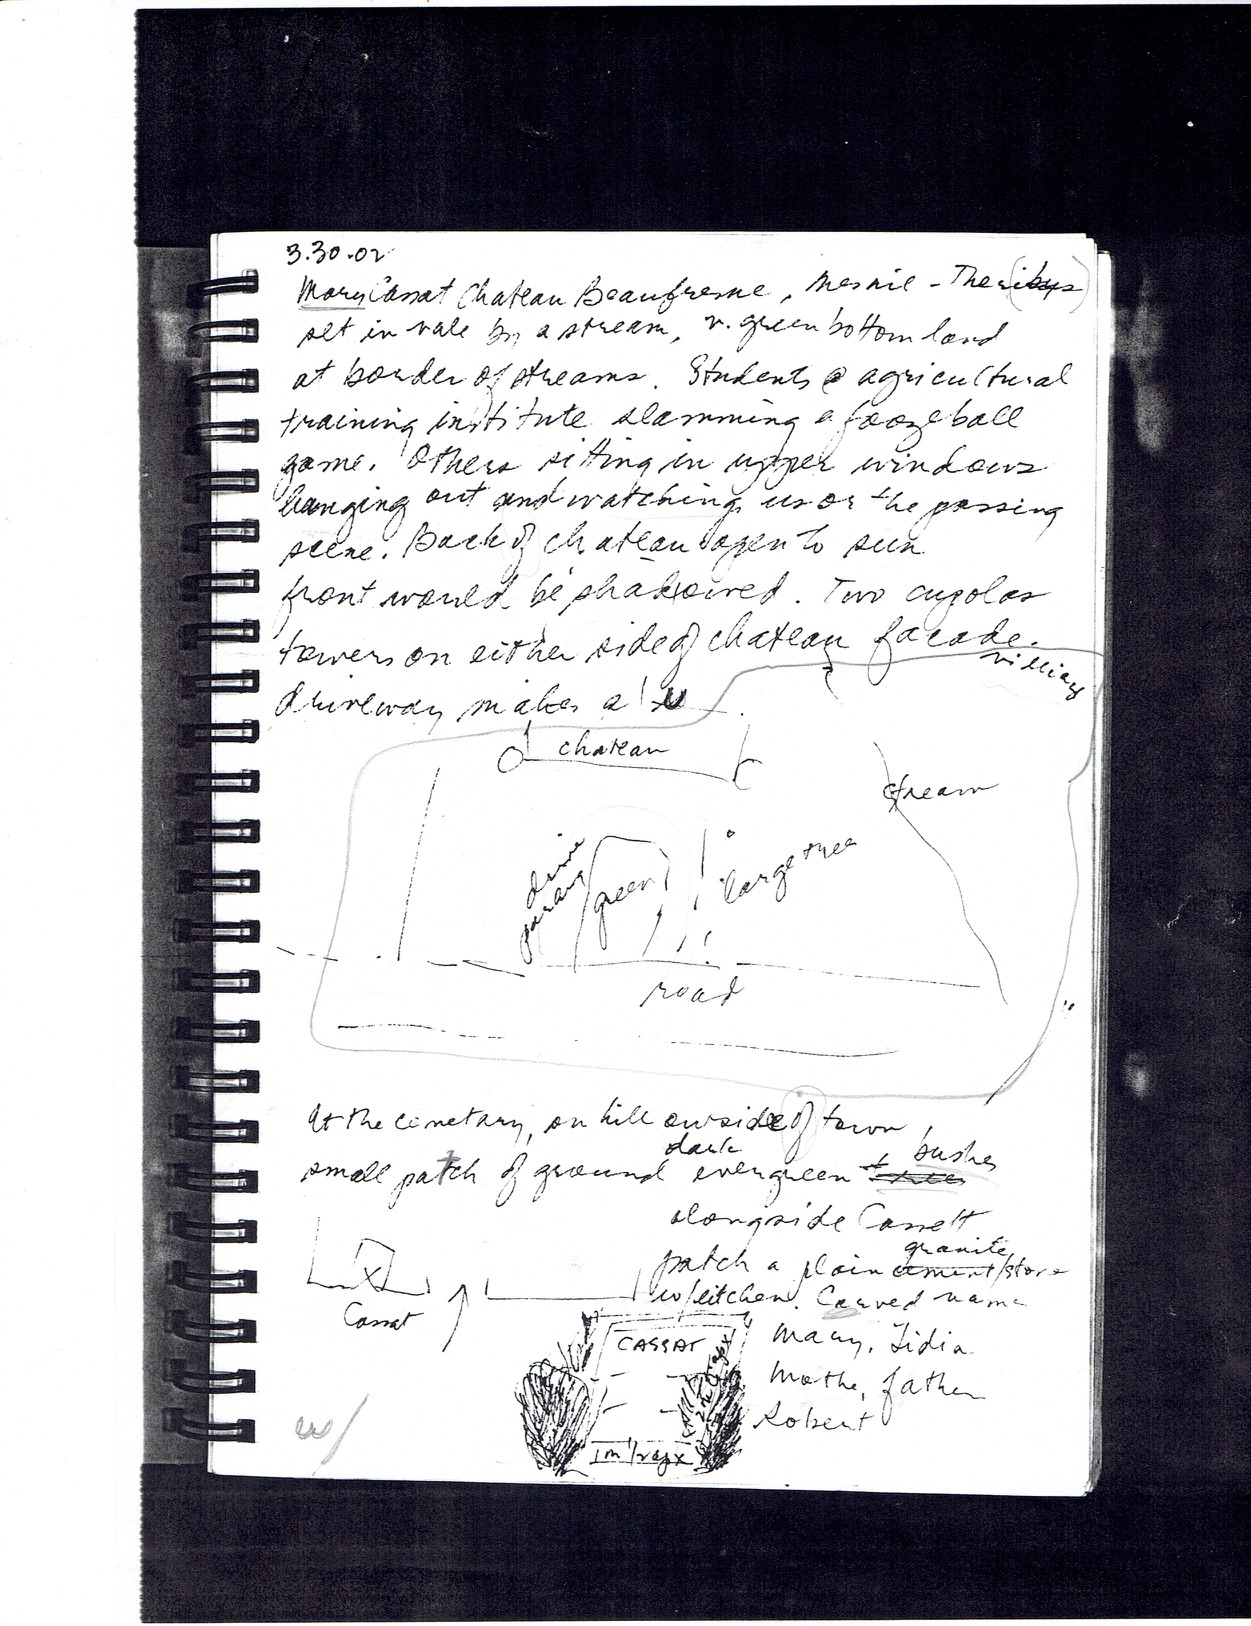 3.30.02
Mary Cassat Chateau Beaufresne, Mesnil - Theribus
set in vale by a stream, v. green bottom land
at border of streams. Students @ agricultural
training institute slamming a foozeball
game. Others sitting in upper windows
hanging out and watching us or the passing
scene. Back of chateau open to sun
front would be shadowed. Two cupolas
towers on either side of chateau facade.
driveway makes a U
chateau
stream
drive
green
large tree
road
At the cemetary, on hill outside of town
small patch of ground dark evergreen + bushes
alongside Cassett
patch a plain cement granite/stone
w/ litchen. Carved name
Cassat
CASSAT
Mary, Lidia
Mothe, father
Robert
w/